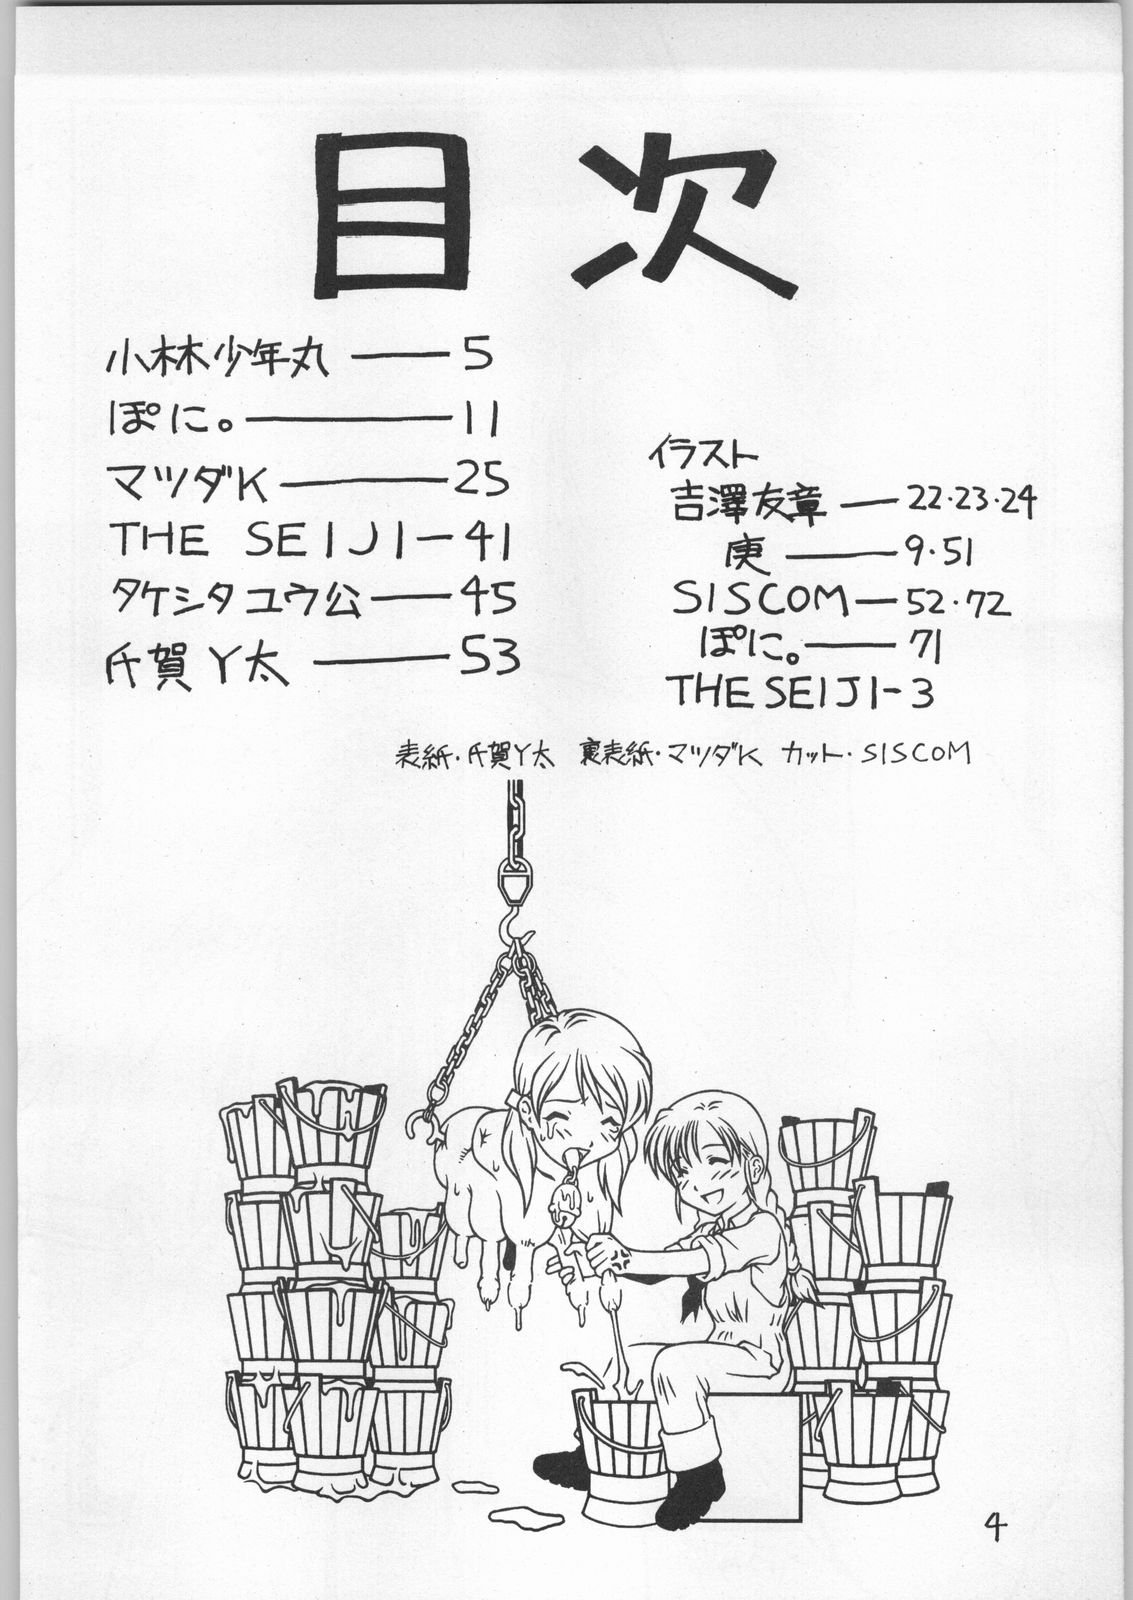 目次
小林少年丸 ── 5
ぽに。 ── 11
マツダK ── 25
THE SEIJI ─ 41
タケシタユウ公 ── 45
氏賀Y太 ── 53
イラスト
吉澤友章 ── 22・23・24
庚 ── 9・51
SISCOM ─ 52・72
ぽに。 ── 71
THE SEIJI ─ 3
表紙・氏賀Y太 裏表紙・マツダK カット・SISCOM
4